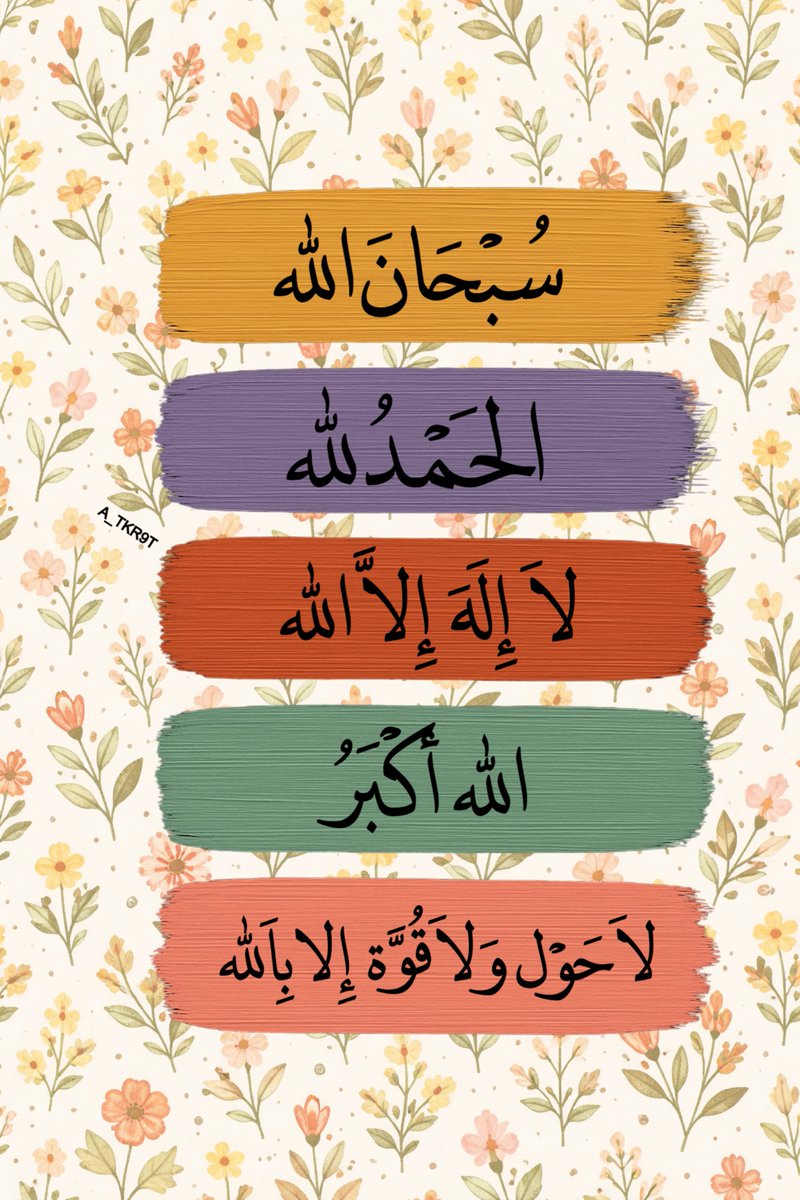 سُبْحَانَ الله
الحَمْدُ لله
A_TKR9T
لاَ إِلَهَ إِلاَّ الله
الله أَكْبَرُ
لاَ حَوْل وَلاَ قُوَّة إِلا بِاَلله